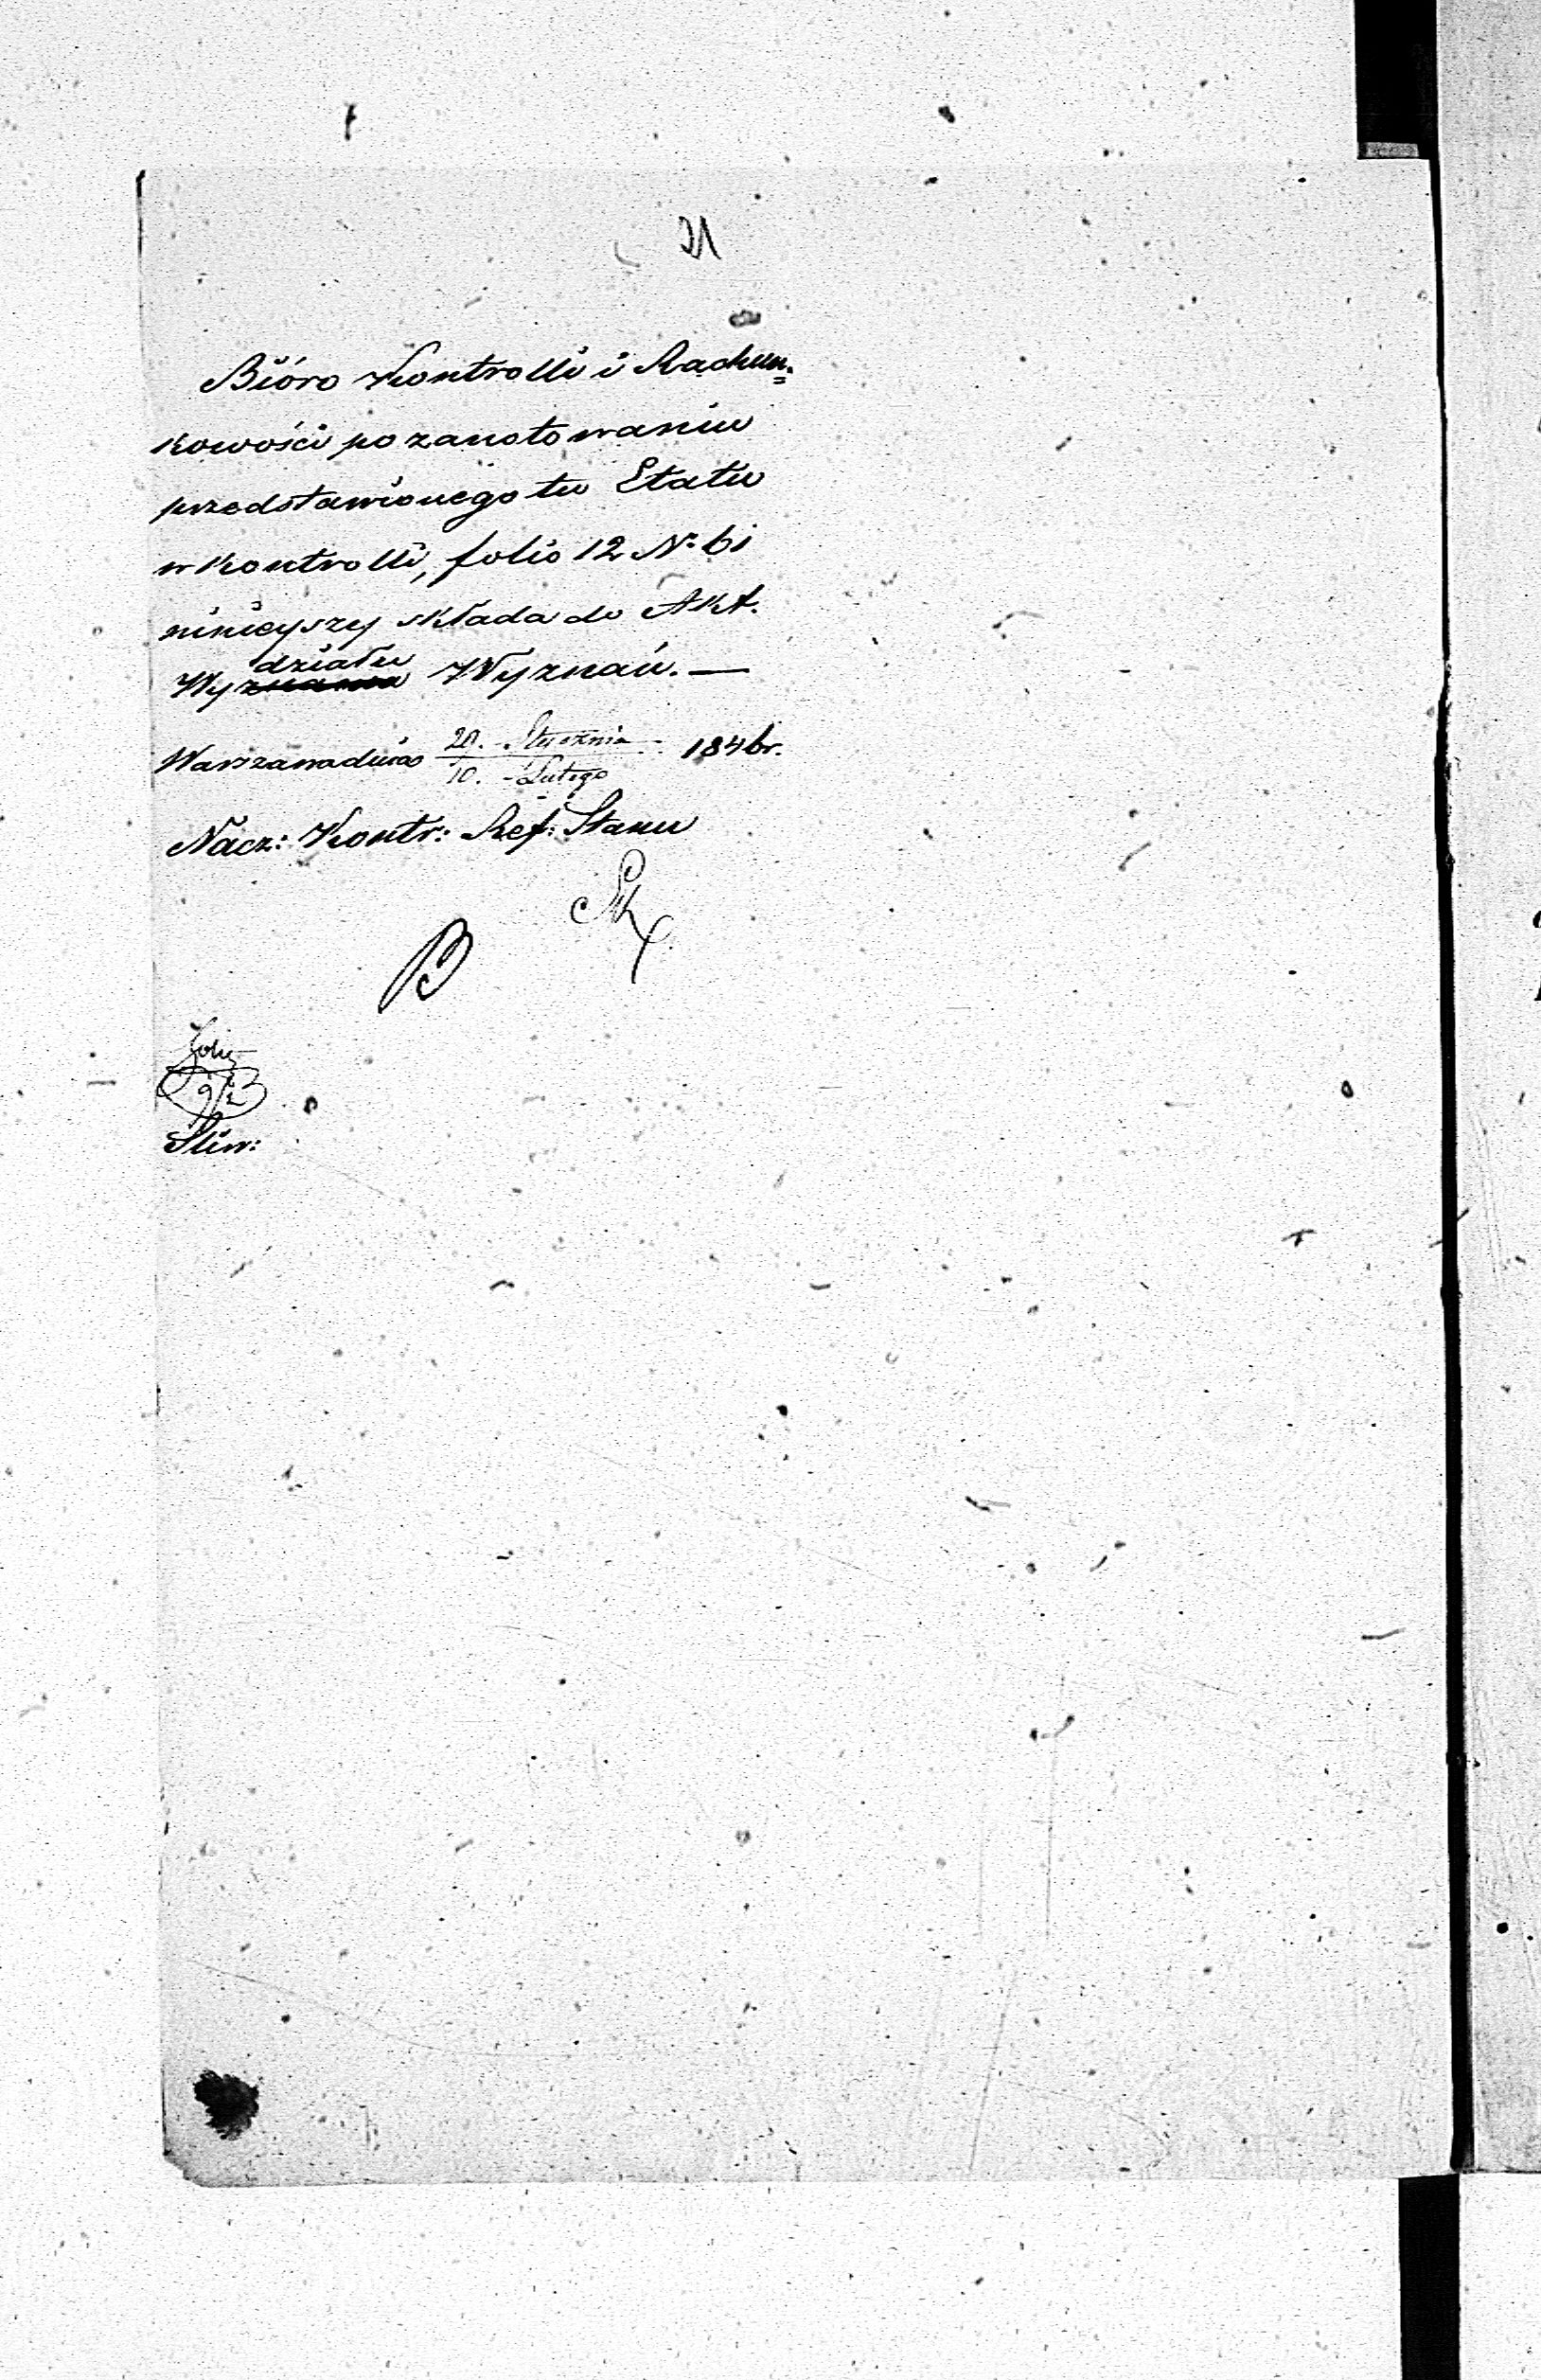 21
Bióro Kontrolli i Rachun=
kowości po zanotowaniu
przedstawionego tu Etatu
w Kontrolli, folio 12 Nr 61
ninieyszy składa do Akt.
Wydziału Wyznań. —
Warszawa dnia 29. Stycznia / 10. Lutego 1846 r.
Nacz: Kontr: Ref: Stanu
B
9/2
Sliw: